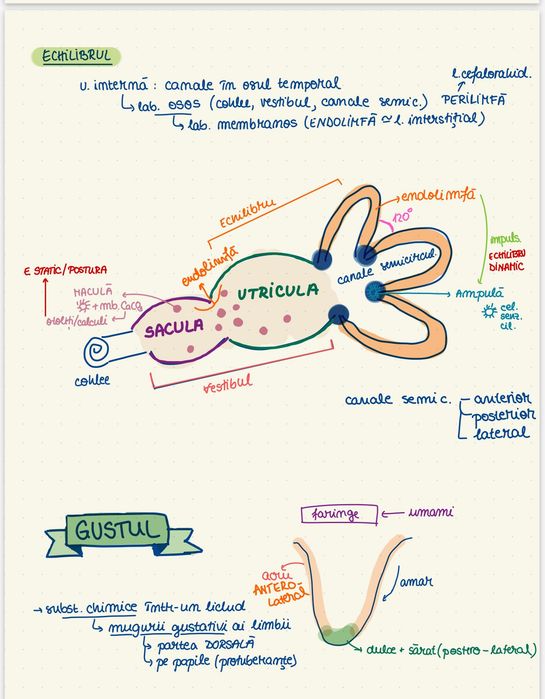 ECHILIBRUL
u. internă : canale în osul temporal
l.cefalorahid.
lab. osos (cohlee, vestibul, canale semic.) PERILIMFĂ
lab. membranos (ENDOLIMFĂ ≃ l. interstițial)
Echilibru
endolimfă
120°
endolimfă
canale semicircul.
impuls.
ECHILIBRU
DINAMIC
E STATIC/POSTURA
MACULĂ
+ mb. CaCO₃
otoliti/calculi
UTRICULA
SACULA
Ampulă
cel.
senz.
cil.
cohlee
vestibul
canale semic.
anterior
posterior
lateral
GUSTUL
faringe ← umami
acru
ANTERO-
Lateral
amar
→ subst. chimice într-un lichid
mugurii gustativi ai limbii
partea DORSALĂ
pe papile (protuberanțe)
dulce + sărat (postero-lateral)